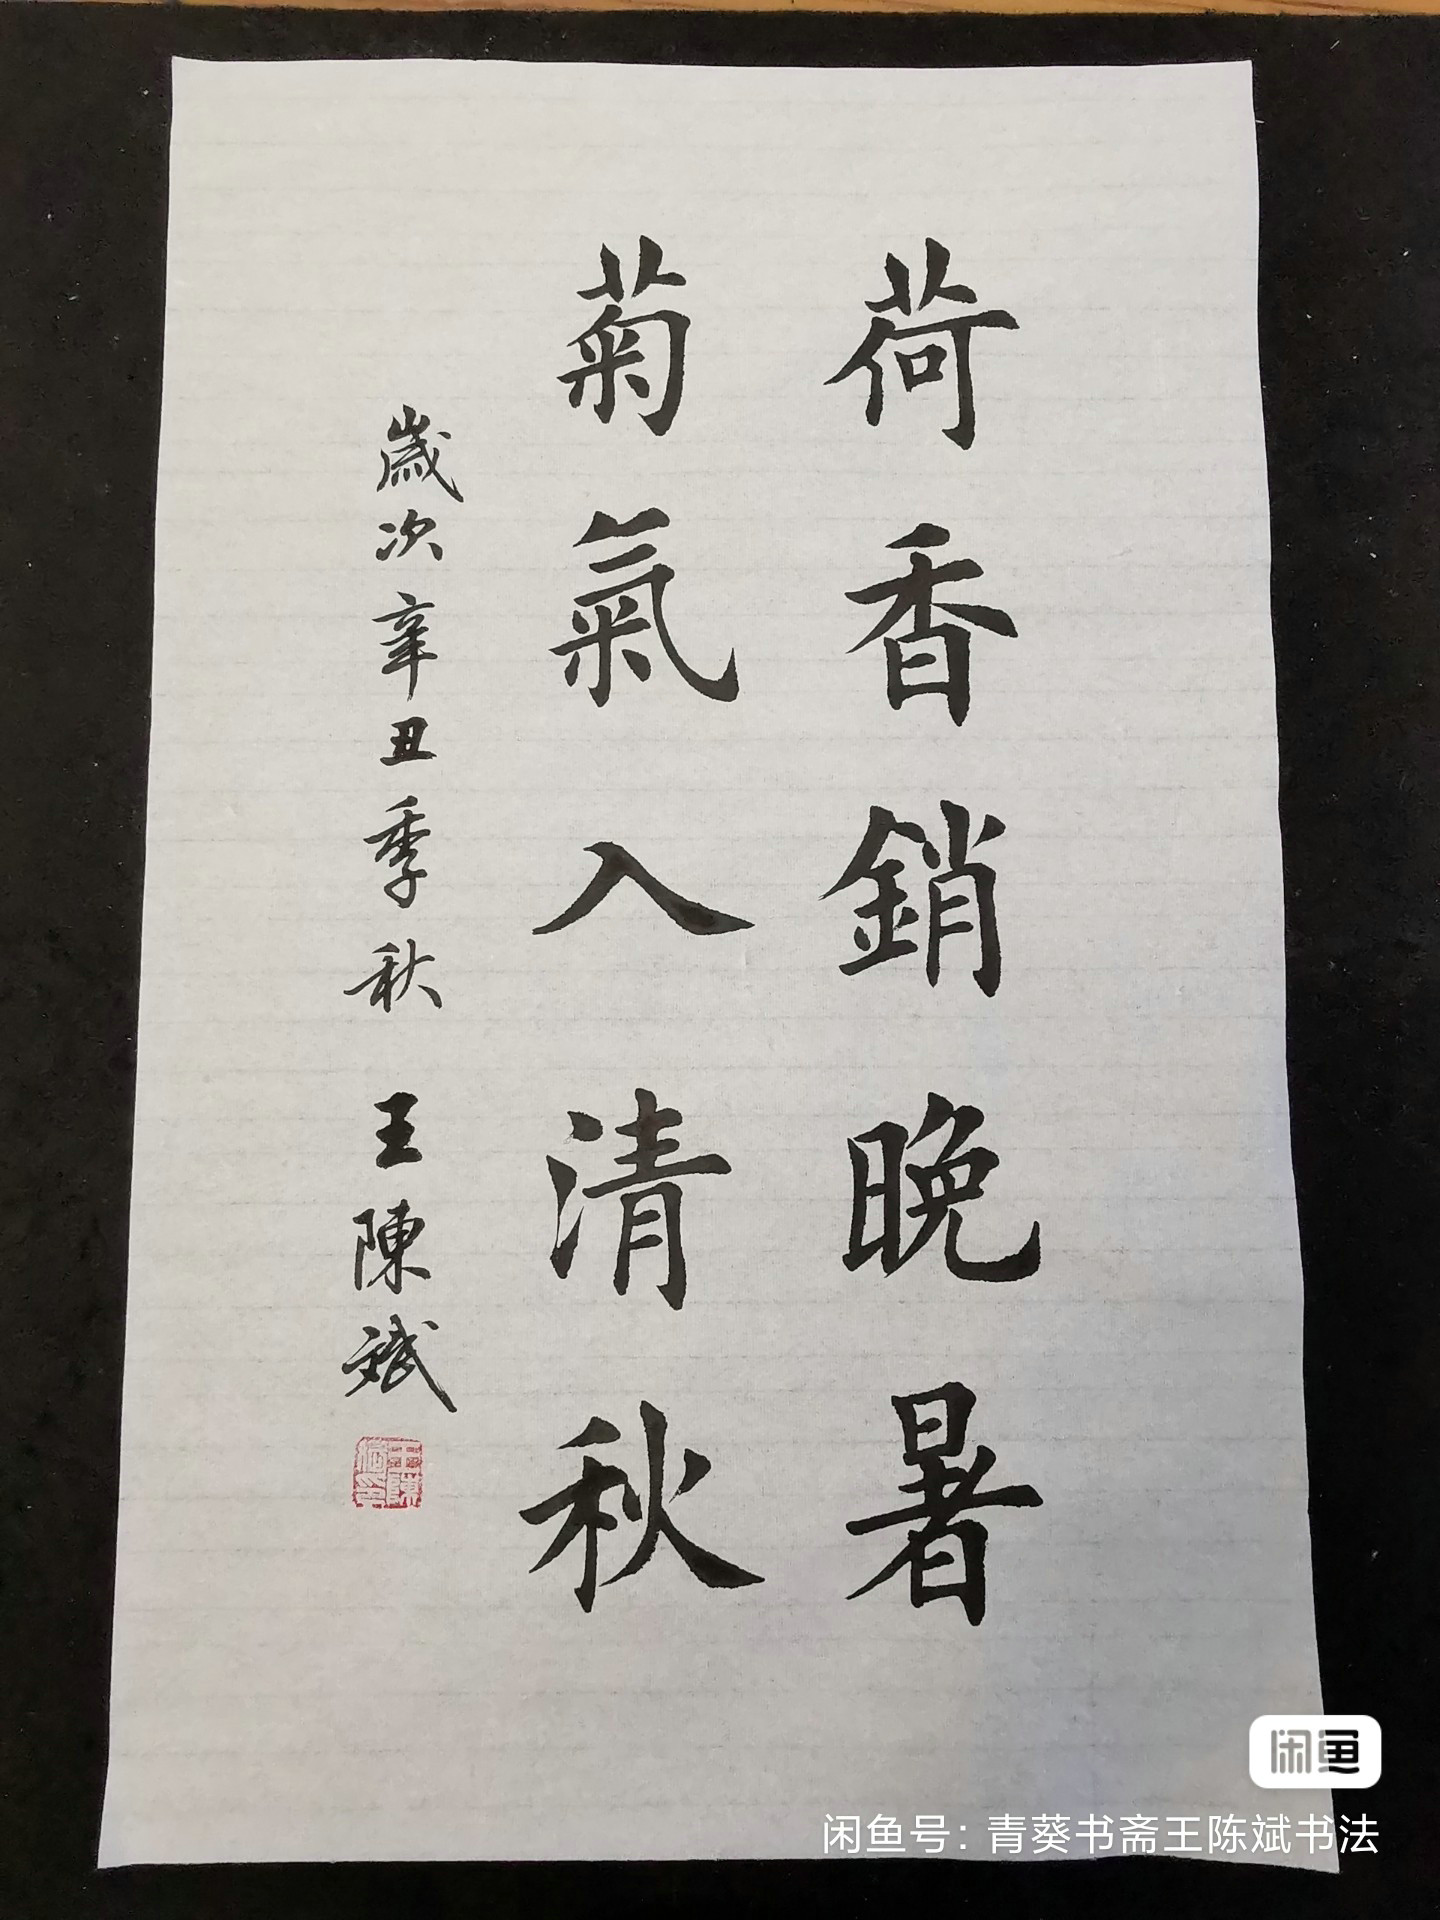 荷香銷晚暑
菊氣入清秋
歲次辛丑季秋 王陳斌
王陳斌印
闲鱼
闲鱼号：青葵书斋王陈斌书法